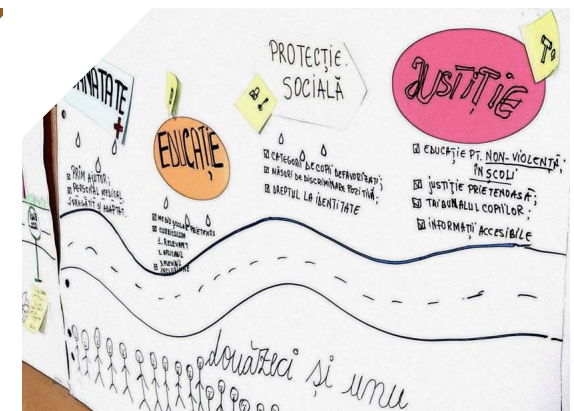 NATATE
PRIM AJUTOR;
PERSONAL MEDICAL
PREGĂTIT ȘI ADAPTAT.
EDUCAȚIE
MEDIU ȘCOLAR PRIETENOS
CURRICULUM
1. RELEVANT
2. APLICABIL
PROTECȚIE
SOCIALĂ
CATEGORII DE COPII DEFAVORIZAȚI;
MĂSURI DE DISCRIMINARE POZITIVĂ;
DREPTUL LA IDENTITATE
JUSTIȚIE
EDUCAȚIE PT. NON-VIOLENȚĂ,
ÎN ȘCOLI
JUSTIȚIE PRIETENOASĂ;
TRIBUNALUL COPIILOR;
INFORMAȚII ACCESIBILE
douăzeci și unu